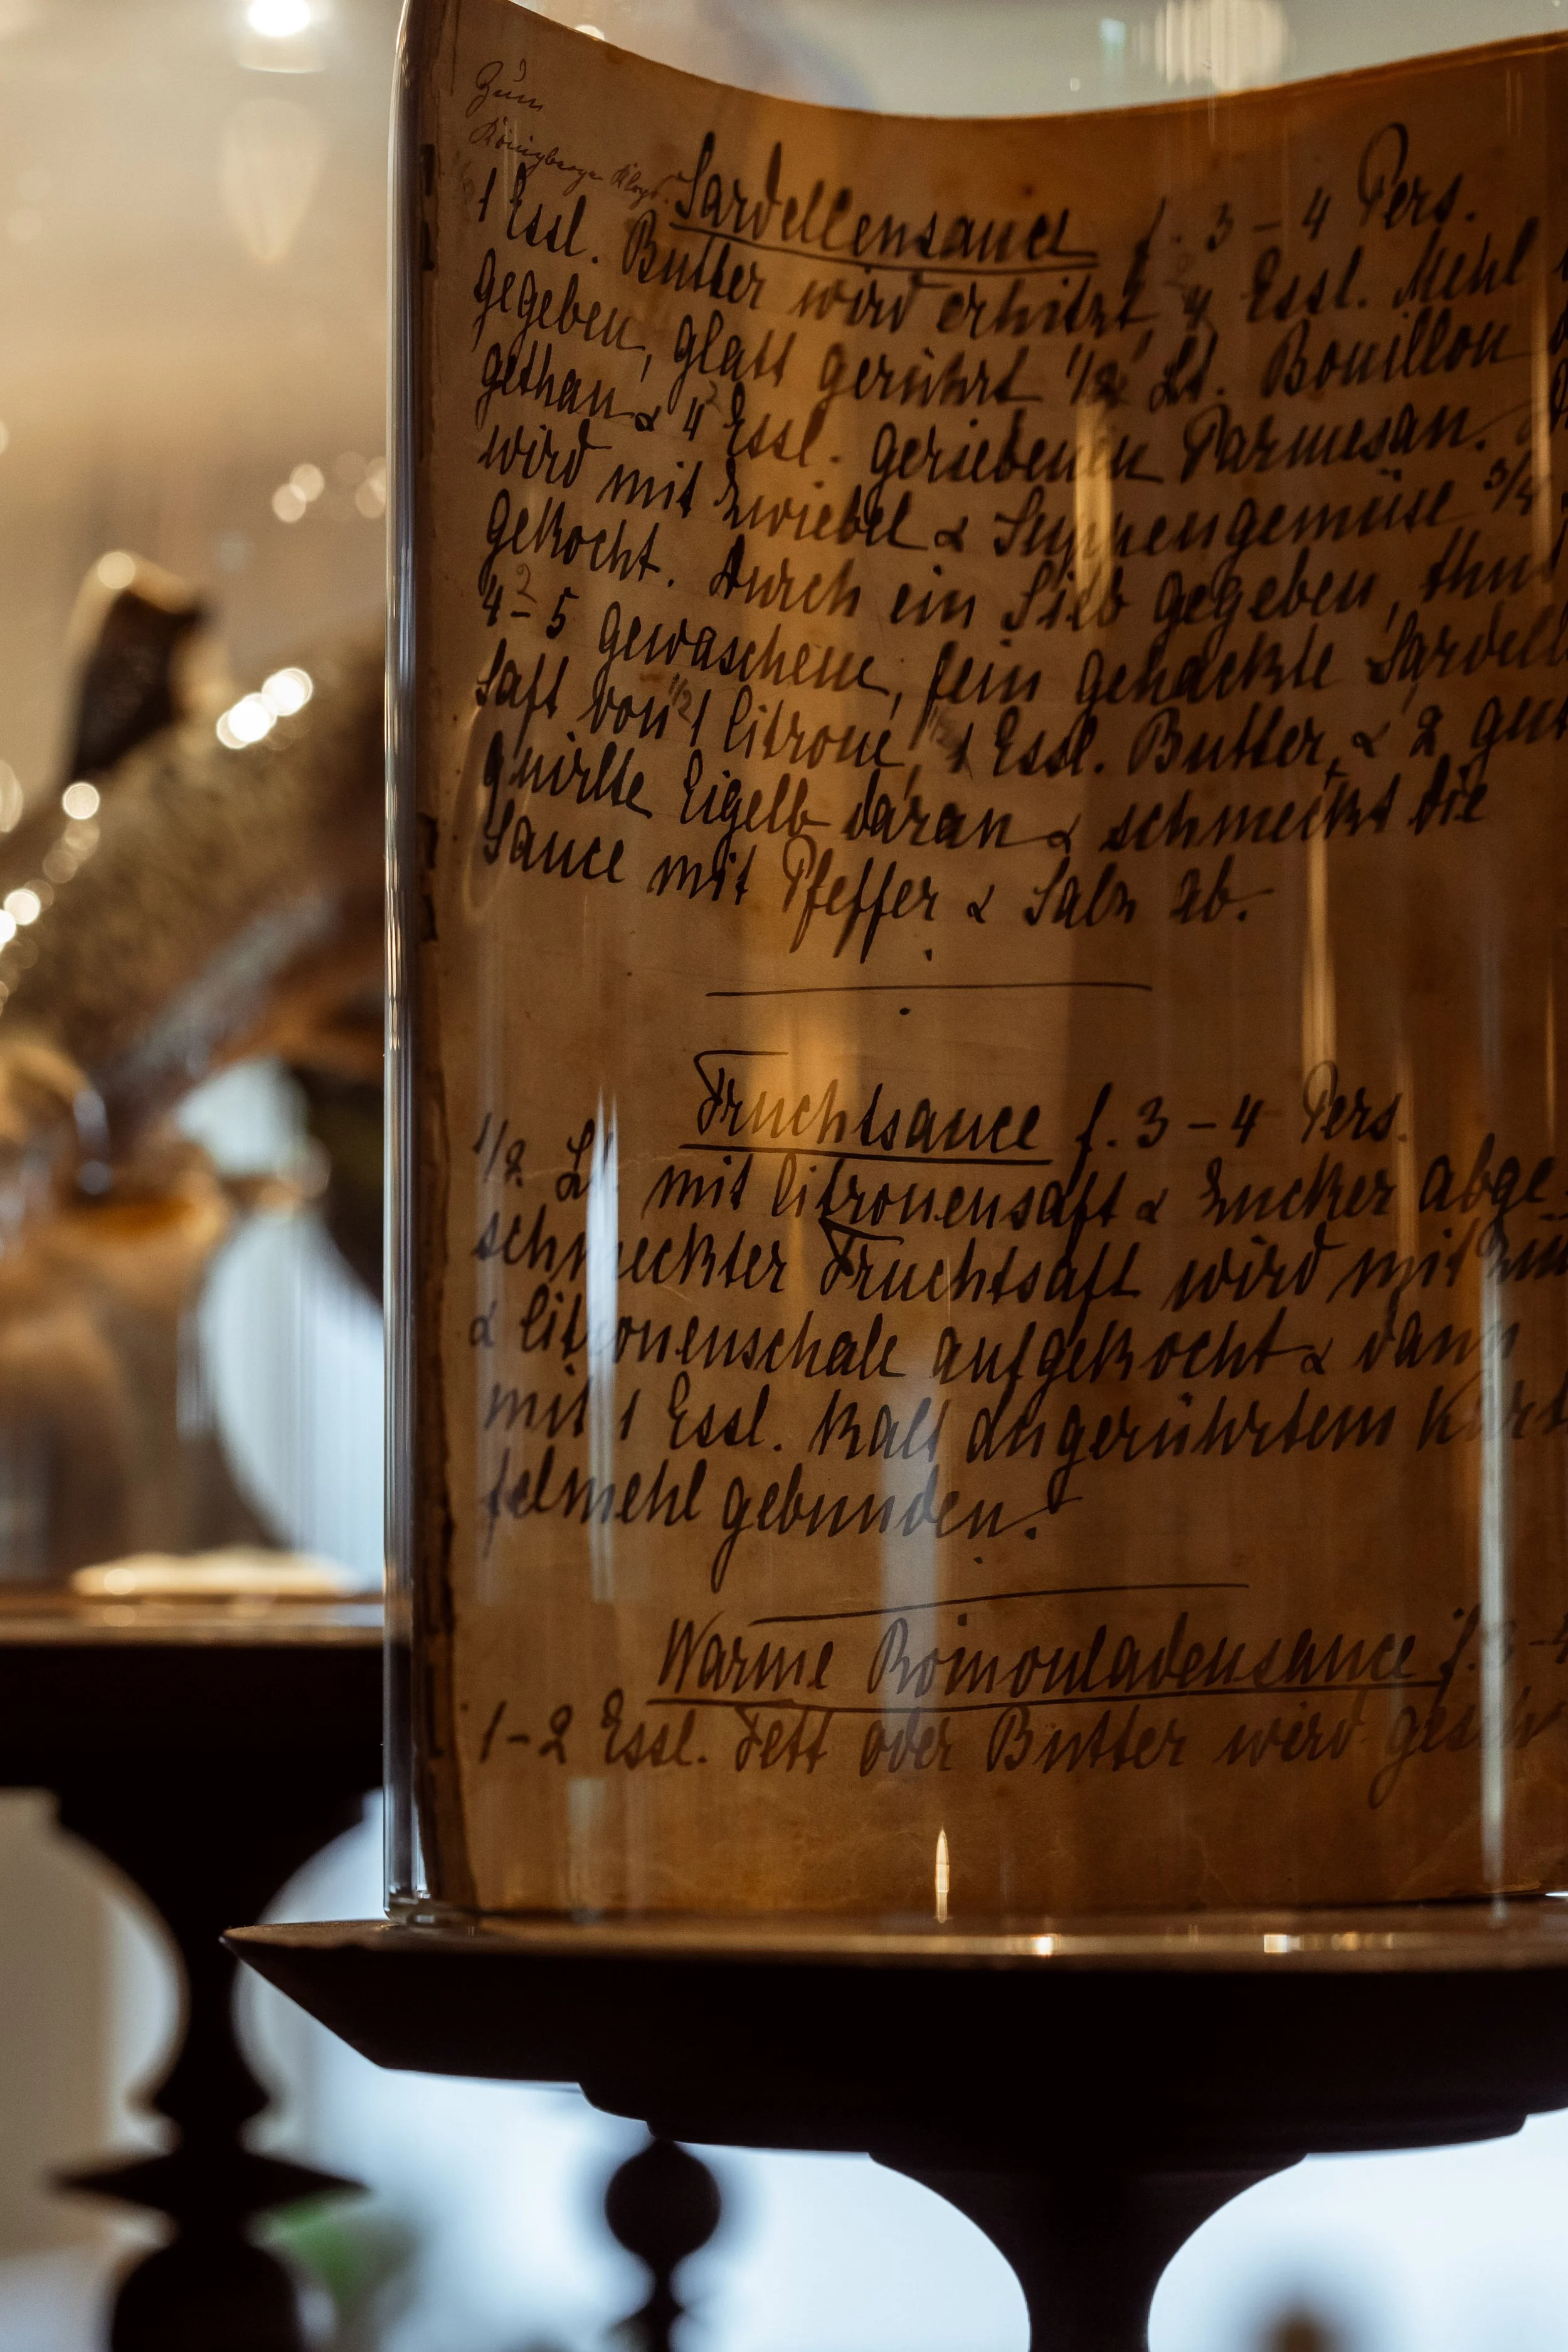 Zum
Königsberger Klops.
Sardellensauce f. 3 – 4 Pers.
1 Essl. Butter wird erhitzt, 4 Essl. Mehl
gegeben, glatt gerührt 1/2 Lt. Bouillon
gethan & 4 Essl. geriebenen Parmesan.
wird mit Zwiebel & Suppengemüse 3/4
gekocht. Durch ein Sieb gegeben, thut
4 – 5 gewaschene, fein gehackte Sardell
Saft von 1 Citrone, 1 Essl. Butter, & 2 gut
quirlte Eigelb daran & schmeckt die
Sauce mit Pfeffer & Salz ab.
Fruchtsauce f. 3 – 4 Pers.
1/2 Lt. mit Citronensaft & Zucker abge
schmeckter Fruchtsaft wird mit
& Citronenschale aufgekocht & dann
mit 1 Essl. kalt angerührtem Kart
felmehl gebunden.
Warme Romouladensauce f. 3 – 4
1-2 Essl. Fett oder Butter wird